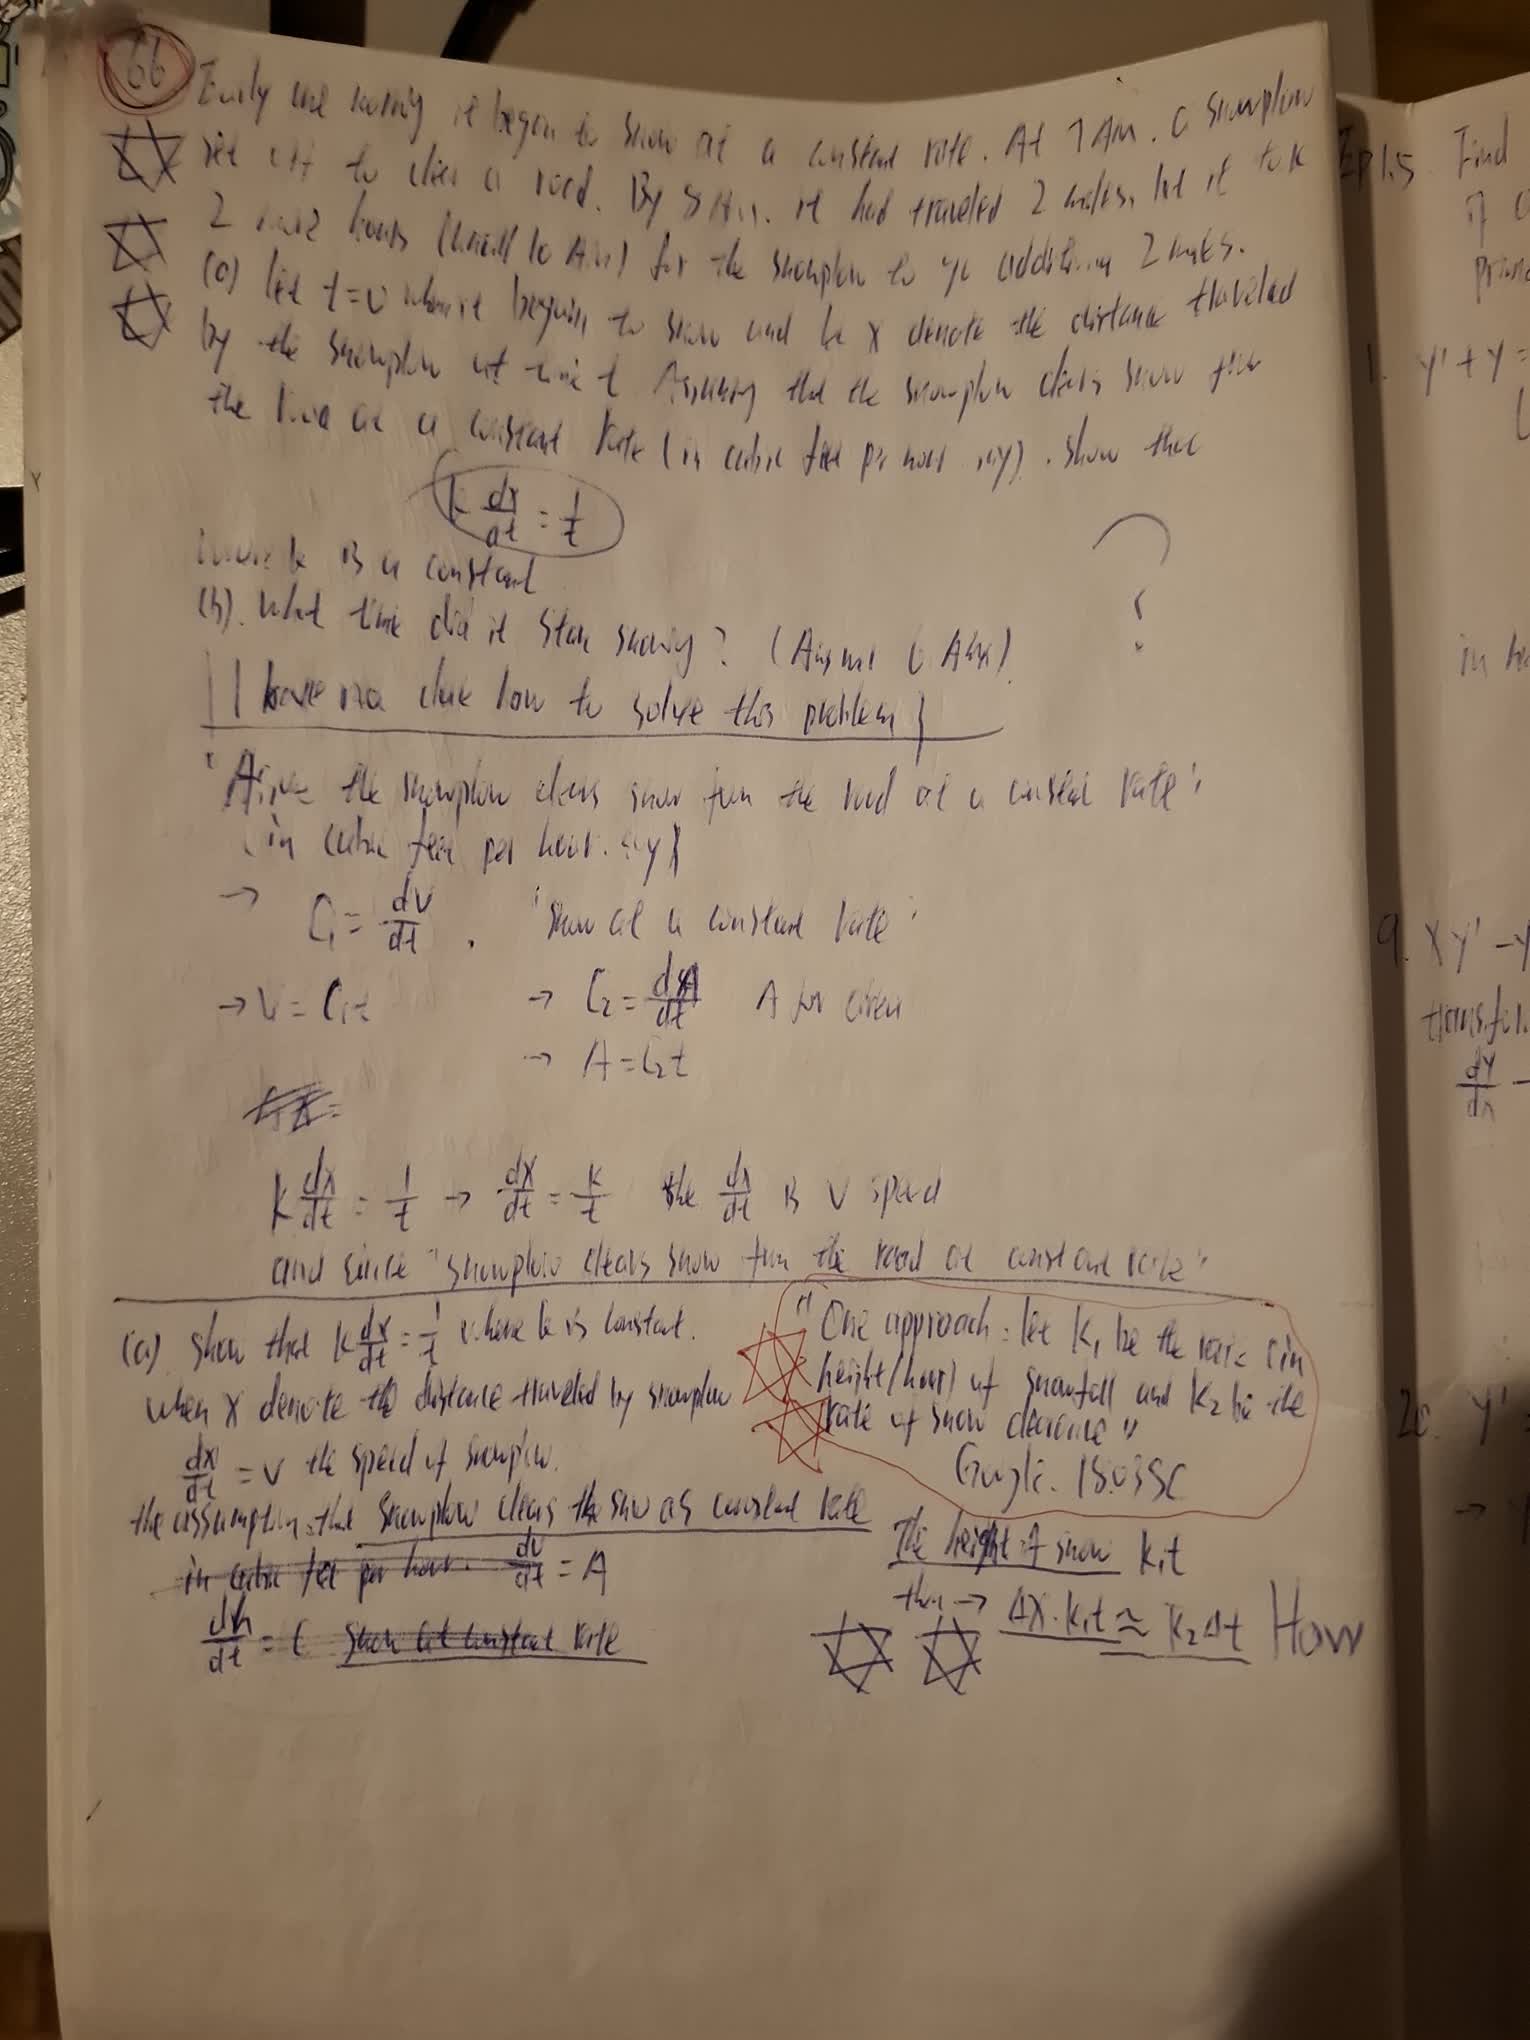 66 Early one morning it began to snow at a constant rate. At 7 AM. a snowplow
set off to clear a road. By 8 AM. it had traveled 2 miles, but it took
2 hours (until 10 AM) for the snowplow to go 2 miles.
(a) let t=0 when it begun to snow and x denote the distance traveled
by the snowplow at time t Assuming that the snowplow clears snow from
the at a constant rate (in cubic feet per hour say). Show that
k dx/dt = 1/t
where k is a constant
(b). What time did it start snowing? (6 AM)
I have no clue how to solve this problem
the snowplow clears snow from the road at a constant rate
in cubic feet per hour. say)
→ C₁ = dv/dt , "Snow at a constant rate"
→ V = C₁t → C₂ = dA/dt A for
→ A = C₂t
k dx/dt = 1/t → dx/dt = k/t the dx/dt is V speed
and since "snowplow clears snow from the road at constant rate"
(a). Show that k dx/dt = 1/t where k is constant.
when x denote the distance traveled by snowplow
dx/dt = v the speed of snowplow.
the assumption that snowplow clears the snow as constant rate
in cubic feet per hour. dv/dt = A
dh/dt = C snow at constant rate
"One approach: let K₁ be the rate (in
height/hour) of snowfall and K₂ be the
rate of snow clearance"
Google. 18.03SC
The height of snow k₁t
then → Δx·k₁t ≈ k₂Δt How
Ep1.5 Find
if
1. y' + y =
in
9. xy' - y
dy/dx -
20. y'